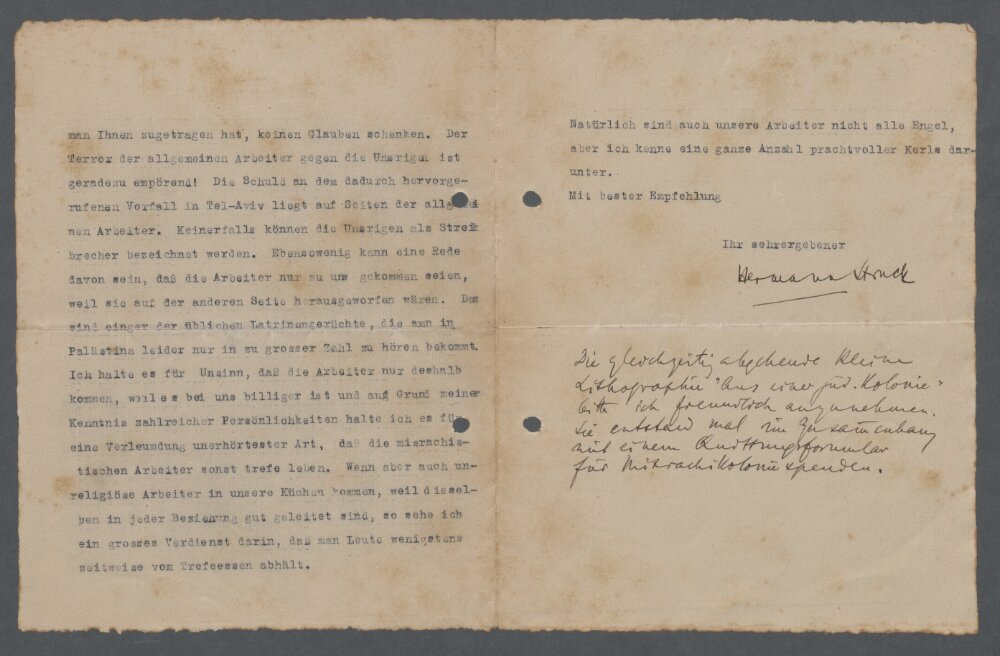 man Ihnen zugetragen hat, keinen Glauben schenken. Der
Terror der allgemeinen Arbeiter gegen die Unsrigen ist
geradezu empörend! Die Schuld an dem dadurch hervorge-
rufenen Vorfall in Tel-Aviv liegt auf Seiten der allgemei
nen Arbeiter. Keinerfalls können die Unsrigen als Streik
brecher bezeichnet werden. Ebensowenig kann eine Rede
davon sein, daß die Arbeiter nur zu uns gekommen seien,
weil sie auf der anderen Seite herausgeworfen wären. Das
sind einger der üblichen Latrinengerüchte, die amn in
Palästina leider nur in zu grosser Zahl zu hören bekommt.
Ich halte es für Unsinn, daß die Arbeiter nur deshalb
kommen, weil es bei uns billiger ist und auf Grund meiner
Kenntnis zahlreicher Persönlichkeiten halte ich es für
eine Verleumdung unerhörtester Art, daß die misrachis-
tischen Arbeiter sonst trefe leben. Wenn aber auch un-
religiöse Arbeiter in unsere Küchen kommen, weil diesel-
ben in jeder Beziehung gut geleitet sind, so sehe ich
ein grosses Verdienst darin, daß man Leute wenigstens
zeitweise vom Trefeessen abhält.
Natürlich sind auch unsere Arbeiter nicht alle Engel,
aber ich kenne eine ganze Anzahl prachtvoller Kerls dar-
unter.
Mit bester Empfehlung
Ihr sehrergebener
Hermann Struck
Die gleichzeitig abgehende kleine
Lithographie "Aus einer jüd. Kolonie"
bitte ich freundlich anzunehmen.
Sie entstand mal im Zusammenhang
mit einem Quittungsformular
für Misrachikolonie spenden.